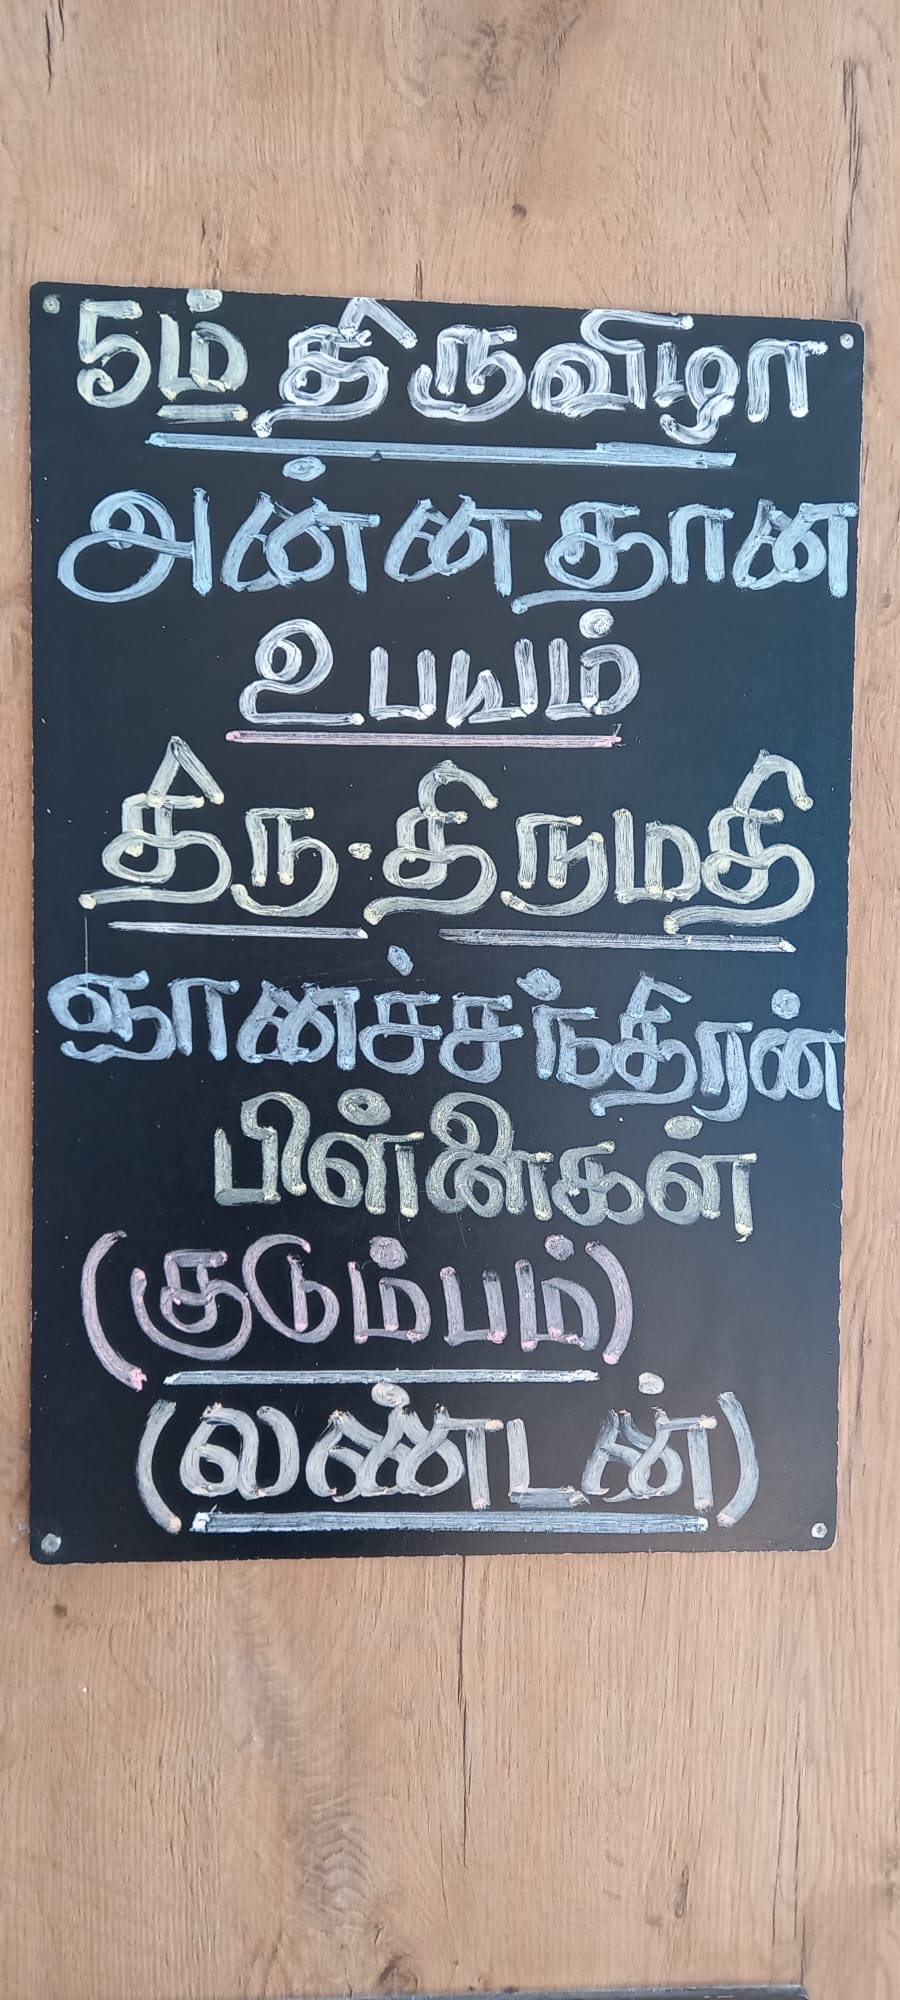 5ம் திருவிழா
அன்னதான
உபயம்
திரு.திருமதி
ஞானச்சந்திரன்
பிள்ளைகள்
(குடும்பம்)
(லண்டன்)